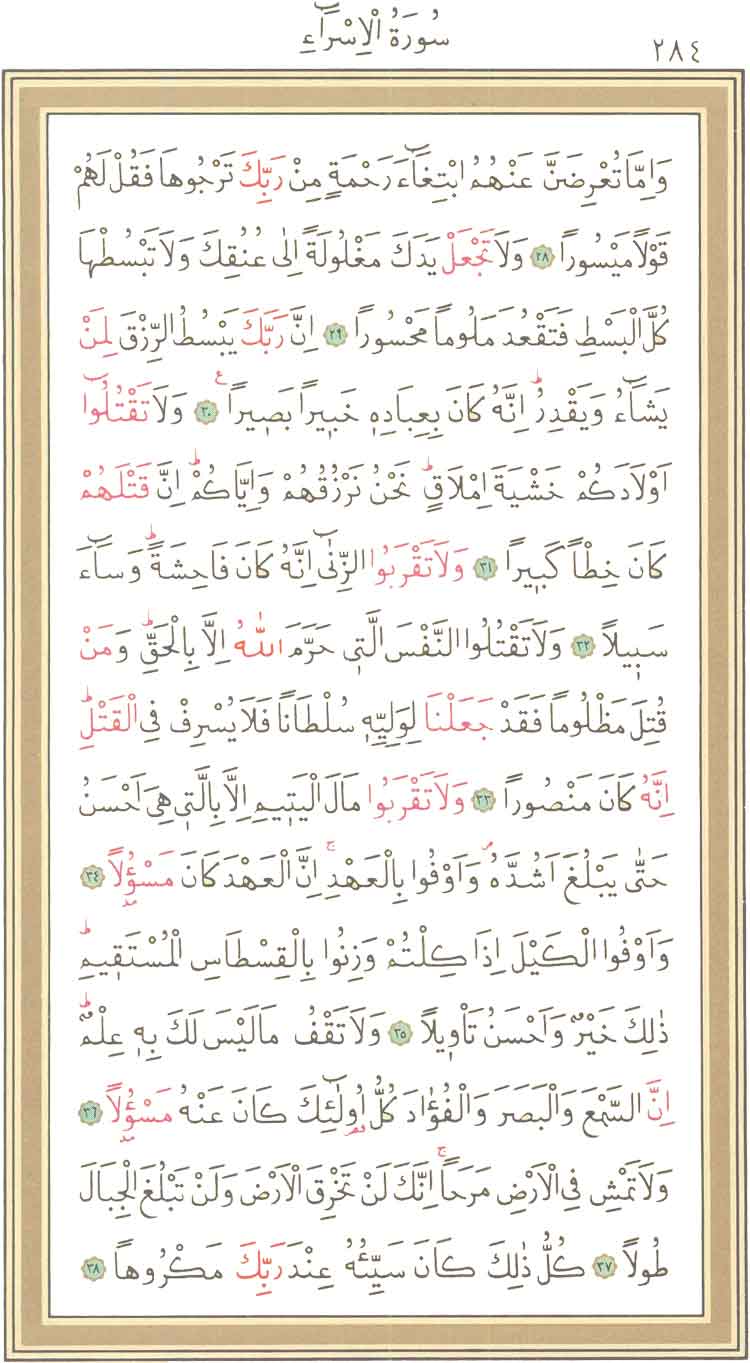 سُورَةُ الْاِسْرَٓاءِ
٢٨٤
وَاِمَّا تُعْرِضَنَّ عَنْهُمُ ابْتِغَٓاءَ رَحْمَةٍ مِنْ رَبِّكَ تَرْجُوهَا فَقُلْ لَهُمْ
قَوْلاً مَيْسُوراً ﴿٢٨﴾ وَلَا تَجْعَلْ يَدَكَ مَغْلُولَةً اِلٰى عُنُقِكَ وَلَا تَبْسُطْهَا
كُلَّ الْبَسْطِ فَتَقْعُدَ مَلُوماً مَحْسُوراً ﴿٢٩﴾ اِنَّ رَبَّكَ يَبْسُطُ الرِّزْقَ لِمَنْ
يَشَٓاءُ وَيَقْدِرُۜ اِنَّهُ كَانَ بِعِبَادِه۪ خَب۪يراً بَص۪يراً۟ ﴿٣٠﴾ وَلَا تَقْتُلُٓوا
اَوْلَادَكُمْ خَشْيَةَ اِمْلَاقٍۜ نَحْنُ نَرْزُقُهُمْ وَاِيَّاكُمْۜ اِنَّ قَتْلَهُمْ
كَانَ خِطْـٔاً كَب۪يراً ﴿٣١﴾ وَلَا تَقْرَبُوا الزِّنٰٓى اِنَّهُ كَانَ فَاحِشَةًۜ وَسَٓاءَ
سَب۪يلاً ﴿٣٢﴾ وَلَا تَقْتُلُوا النَّفْسَ الَّت۪ي حَرَّمَ اللّٰهُ اِلَّا بِالْحَقِّۜ وَمَنْ
قُتِلَ مَظْلُوماً فَقَدْ جَعَلْنَا لِوَلِيِّه۪ سُلْطَاناً فَلَا يُسْرِفْ فِي الْقَتْلِۜ
اِنَّهُ كَانَ مَنْصُوراً ﴿٣٣﴾ وَلَا تَقْرَبُوا مَالَ الْيَت۪يمِ اِلَّا بِالَّت۪ي هِيَ اَحْسَنُ
حَتّٰى يَبْلُغَ اَشُدَّهُۖ وَاَوْفُوا بِالْعَهْدِۚ اِنَّ الْعَهْدَ كَانَ مَسْؤُ۫لاً ﴿٣٤﴾
وَاَوْفُوا الْكَيْلَ اِذَا كِلْتُمْ وَزِنُوا بِالْقِسْطَاسِ الْمُسْتَق۪يمِۜ
ذٰلِكَ خَيْرٌ وَاَحْسَنُ تَأْو۪يلاً ﴿٣٥﴾ وَلَا تَقْفُ مَا لَيْسَ لَكَ بِه۪ عِلْمٌۜ
اِنَّ السَّمْعَ وَالْبَصَرَ وَالْفُؤٰادَ كُلُّ اُو۬لٰٓئِكَ كَانَ عَنْهُ مَسْؤُ۫لاً ﴿٣٦﴾
وَلَا تَمْشِ فِي الْاَرْضِ مَرَحاًۚ اِنَّكَ لَنْ تَخْرِقَ الْاَرْضَ وَلَنْ تَبْلُغَ الْجِبَالَ
طُولاً ﴿٣٧﴾ كُلُّ ذٰلِكَ كَانَ سَيِّئُهُ عِنْدَ رَبِّكَ مَكْرُوهاً ﴿٣٨﴾